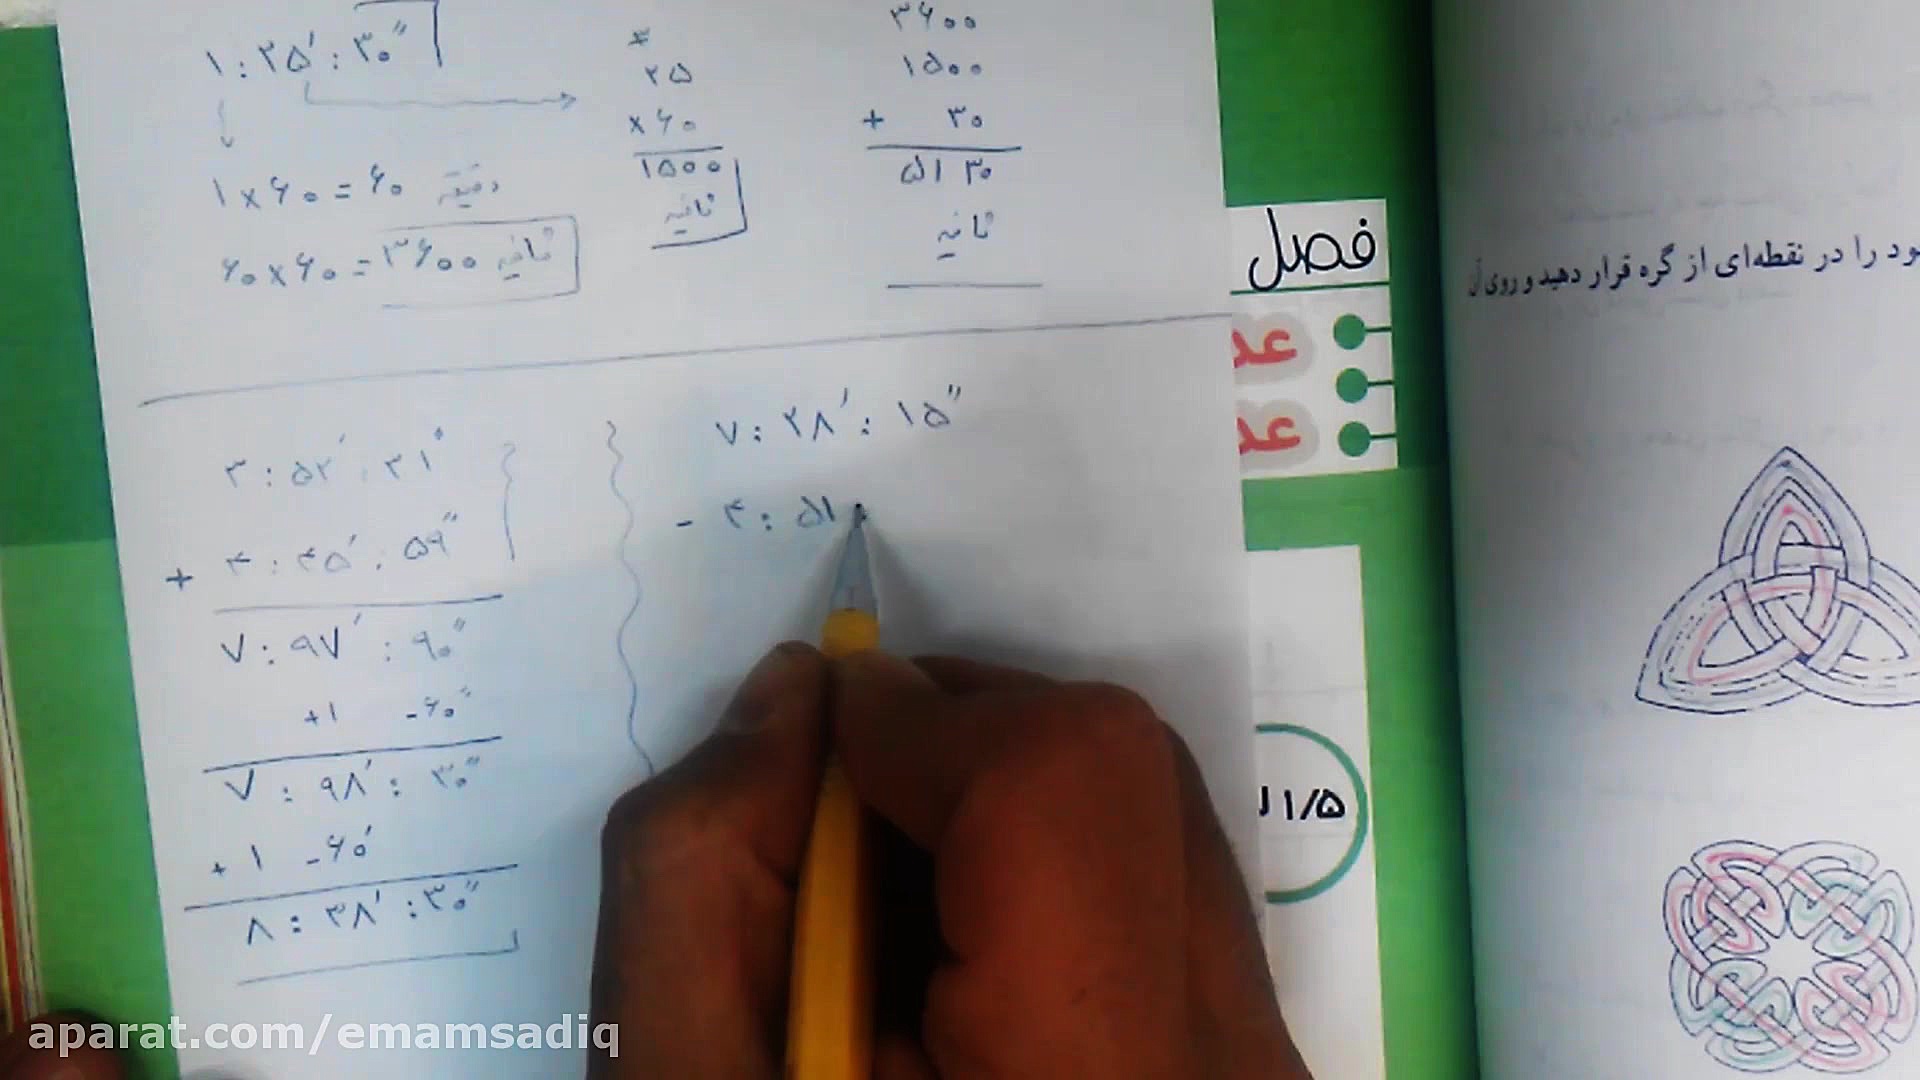 ۱ : ۲۵′ : ۳۰″
۱ × ۶۰ = ۶۰ دقیقه
۶۰ × ۶۰ = ۳۶۰۰ ثانیه
۲۵
× ۶۰
۱۵۰۰
ثانیه
۳۶۰۰
۱۵۰۰
+ ۳۰
۵۱۳۰
ثانیه
۳ : ۵۲′ : ۳۱″
+ ۴ : ۴۵′ : ۵۹″
۷ : ۹۷′ : ۹۰″
+۱ -۶۰″
۷ : ۹۸′ : ۳۰″
+ ۱ -۶۰′
۸ : ۳۸′ : ۳۰″
۷ : ۲۸′ : ۱۵″
- ۴ : ۵۱
فصل
عد
عد
۱/۵ ل
ود را در نقطه‌ای از گره قرار دهید و روی آن
aparat.com/emamsadiq